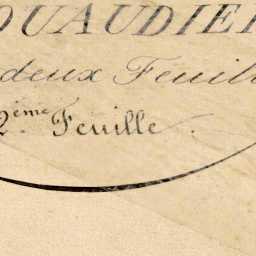 OUAUDIER
deux Feuill
2ème Feuille.